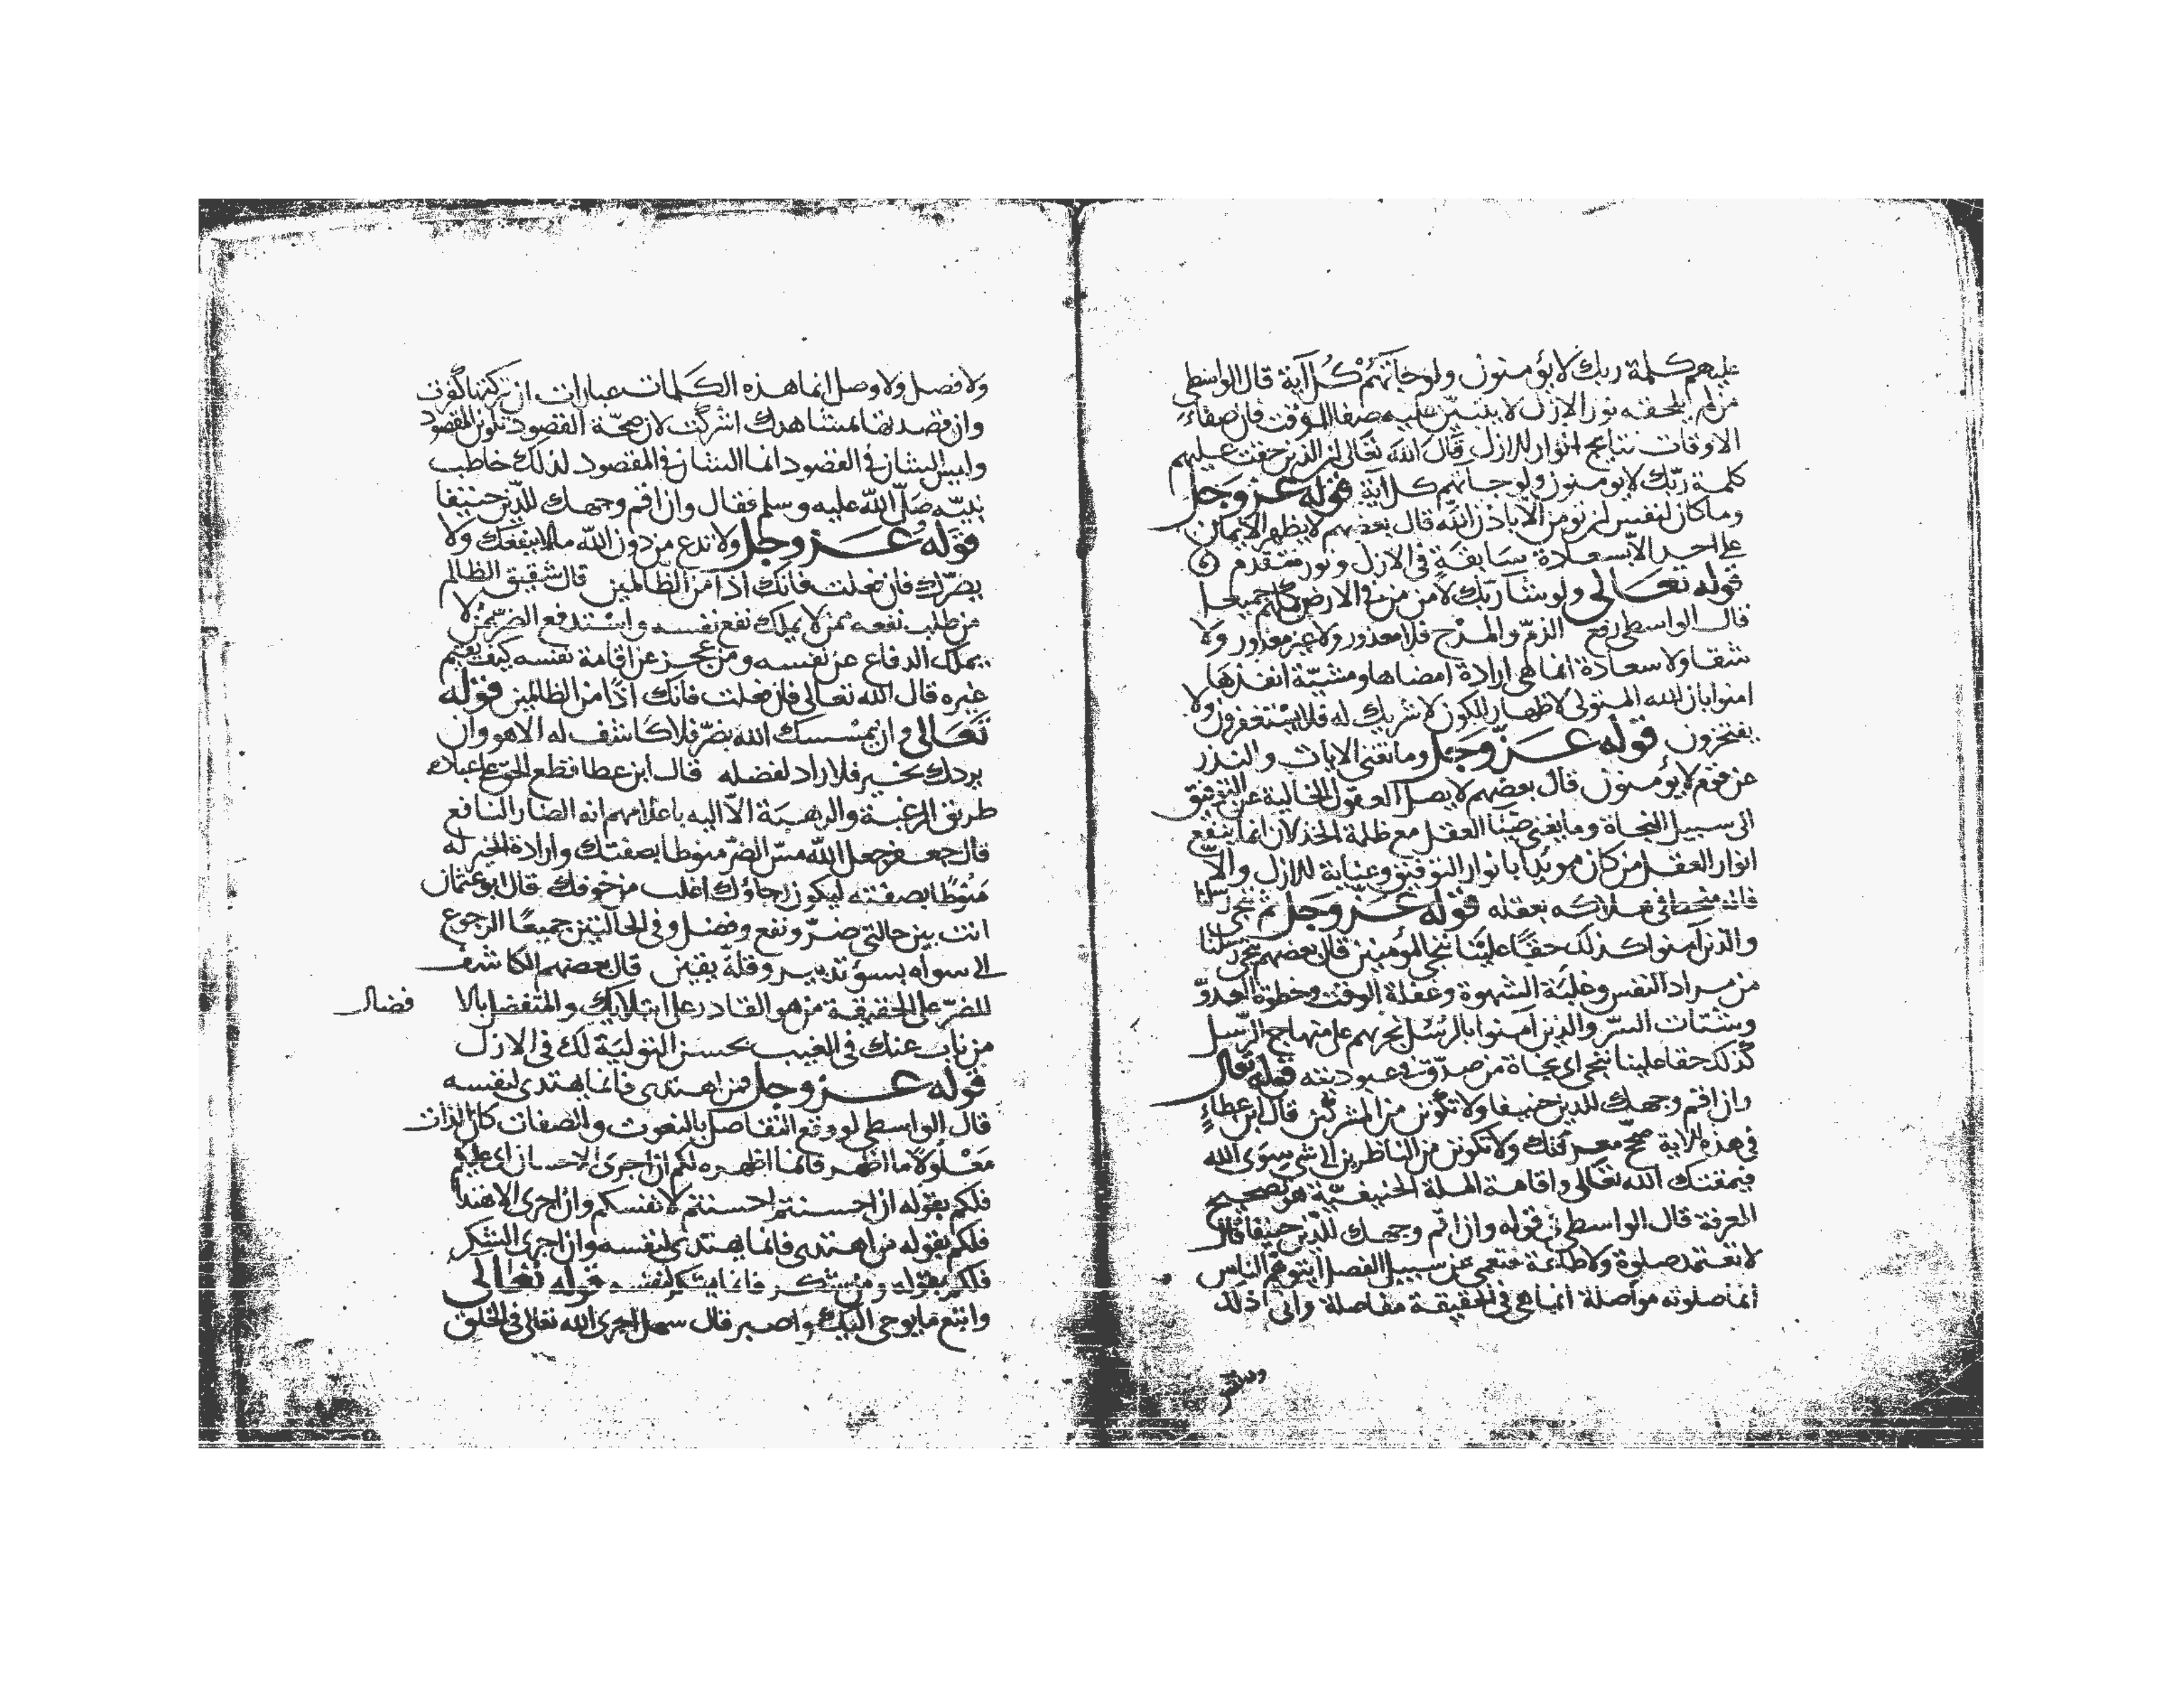 عليهم كلمة ربك لا يؤمنون ولو جآتهم كل آية قال الواسطى
من لم يلحقه نور الازل لا يتبيّن عليه صفا الوقت فان صفاء
الاوقات نتايج انوار الازل وقال الله تعالى ان الذين حقت عليهم
كلمة ربّك لا يومنون ولو جاتهم كل آية قوله عز وجل
وما كان لنفس ان تومن الا باذن الله قال بعضهم لا يظهر الايمان
على احد الا بسعادة سابقة في الازل ونور متقدم
قوله تعالى ولو شا ربك لامن من في الارض كلهم جميعا
قال الواسطى رفع الذمّ والمدح فلا معذور ولا غير معذور ولا
شقا ولا سعادة انما هي ارادة امضاها ومشيّة انفذها
امنوا بان الله المتولى لاظهار الكون لا شريك له فلا يستغفرون ولا
يفتخرون قوله عزّ وجل وما تغنى الايات والنذر
عن قوم لا يؤمنون قال بعضهم لا يصل العقول الخالية عن التوفيق
الى سبيل النجاة وما يغنى ضيا العقل مع ظلمة الخذلان انما ينفع
انوار العقل من كان مويدا بانوار التوفيق وعناية الازل والا
فانه متخط في هلاكه بعقله قوله عزّ وجل ثم ننجى رسلنا
والذين آمنوا كذلك حقا علينا ننج المؤمنين قال بعضهم ننجى رسلنا
من مراد النفس وغلبة الشهوة وغفلة الوقت وخطوة العدوّ
وشتات السرّ والذين آمنوا بالرسل نجريهم على منهاج الرّسل
كذلك حقا علينا ننجى اى نجاة من صدّق في عبوديته قوله تعالى
وان اقم وجهك للدين حنيفا ولا تكونن من المشركين قال ابن عطاء
في هذه الاية صحّح معرفتك ولا تكونن من الناظرين الى شي سوى الله
فيمقتك الله تعالى واقامة الملة الحنيفيّة هو تصحيح
المعرفة قال الواسطى في قوله وان اقم وجهك للدين حنيفا قال
لا تعتمد صلوة ولا طاعة فتعمى عن سبيل الفصل ايتوهّم الناس
انما صلوته مواصلة انما هي في الحقيقة مفاصلة وانى ذلك
ولا فصل ولا وصل انما هذه الكلمات عبارات ان تركتها كفرت
وان قصدتها لمشاهدك اشركت لان صحّة القصود تلوّن المقصود
وليس الشان في القصود انما الشان في المقصود لذلك خاطب
نبيّه صلّى الله عليه وسلم فقال وان اقم وجهك للدّين حنيفا
قوله عز وجل ولا تدع من دون الله ما لا ينفعك ولا
يضرّك فان فعلت فانك اذا من الظالمين قال شقيق الظالم
من طلب نفعه ممن لا يملك نفع نفسه واستدفع الضرّ ممن لا
يملك الدفاع عن نفسه ومن عجز عن اقامة نفسه كيف يقيم
غيره قال الله تعالى فان فعلت فانك اذًا من الظالمين قوله
تعالى وان يمسسك الله بضرّ فلا كاشف له الا هو وان
يردك بخير فلا راد لفضله قال ابن عطا قطع الحق على عباده
طريق الرغبة والرهبة الّا اليه باعلامهم انه الضار النافع
قال جعفر جعل الله مسّ الضرّ منوطا بصفتك وارادة الخير له
منوطًا بصفته ليكون رجاؤك اغلب من خوفك قال ابو عثمان
انت بين حالتى ضرّ ونفع وفضل وفي الحالتين جميعًا الرجوع
الى سواه بسوء تدبير وقلّة يقين قال بعضهم الكاشف
للضرّ على الحقيقة من هو القادر على ابتلايك والمتفضل بالا
فضال
من ناب عنك في الغيب بحسن التولية لك في الازل
قوله عز وجل فمن اهتدى فانما يهتدى لنفسه
قال الواسطى لو وقع التفاصل بالنعوت والصفات كان الذات
معلولًا ما اظهر فانما اظهره لكم ان اجرى الاحسان عليكم
فلكم بقوله ان احسنتم احسنتم لانفسكم وان اجرى الاهتدا
فلكم بقوله من اهتدى فانما يهتدى لنفسه وان اجرى الشكر
فلكم بقوله ومن شكر فانما يشكر لنفسه قوله تعالى
واتبع ما يوحى اليك واصبر قال سهل اجرى الله تعالى في الخلق